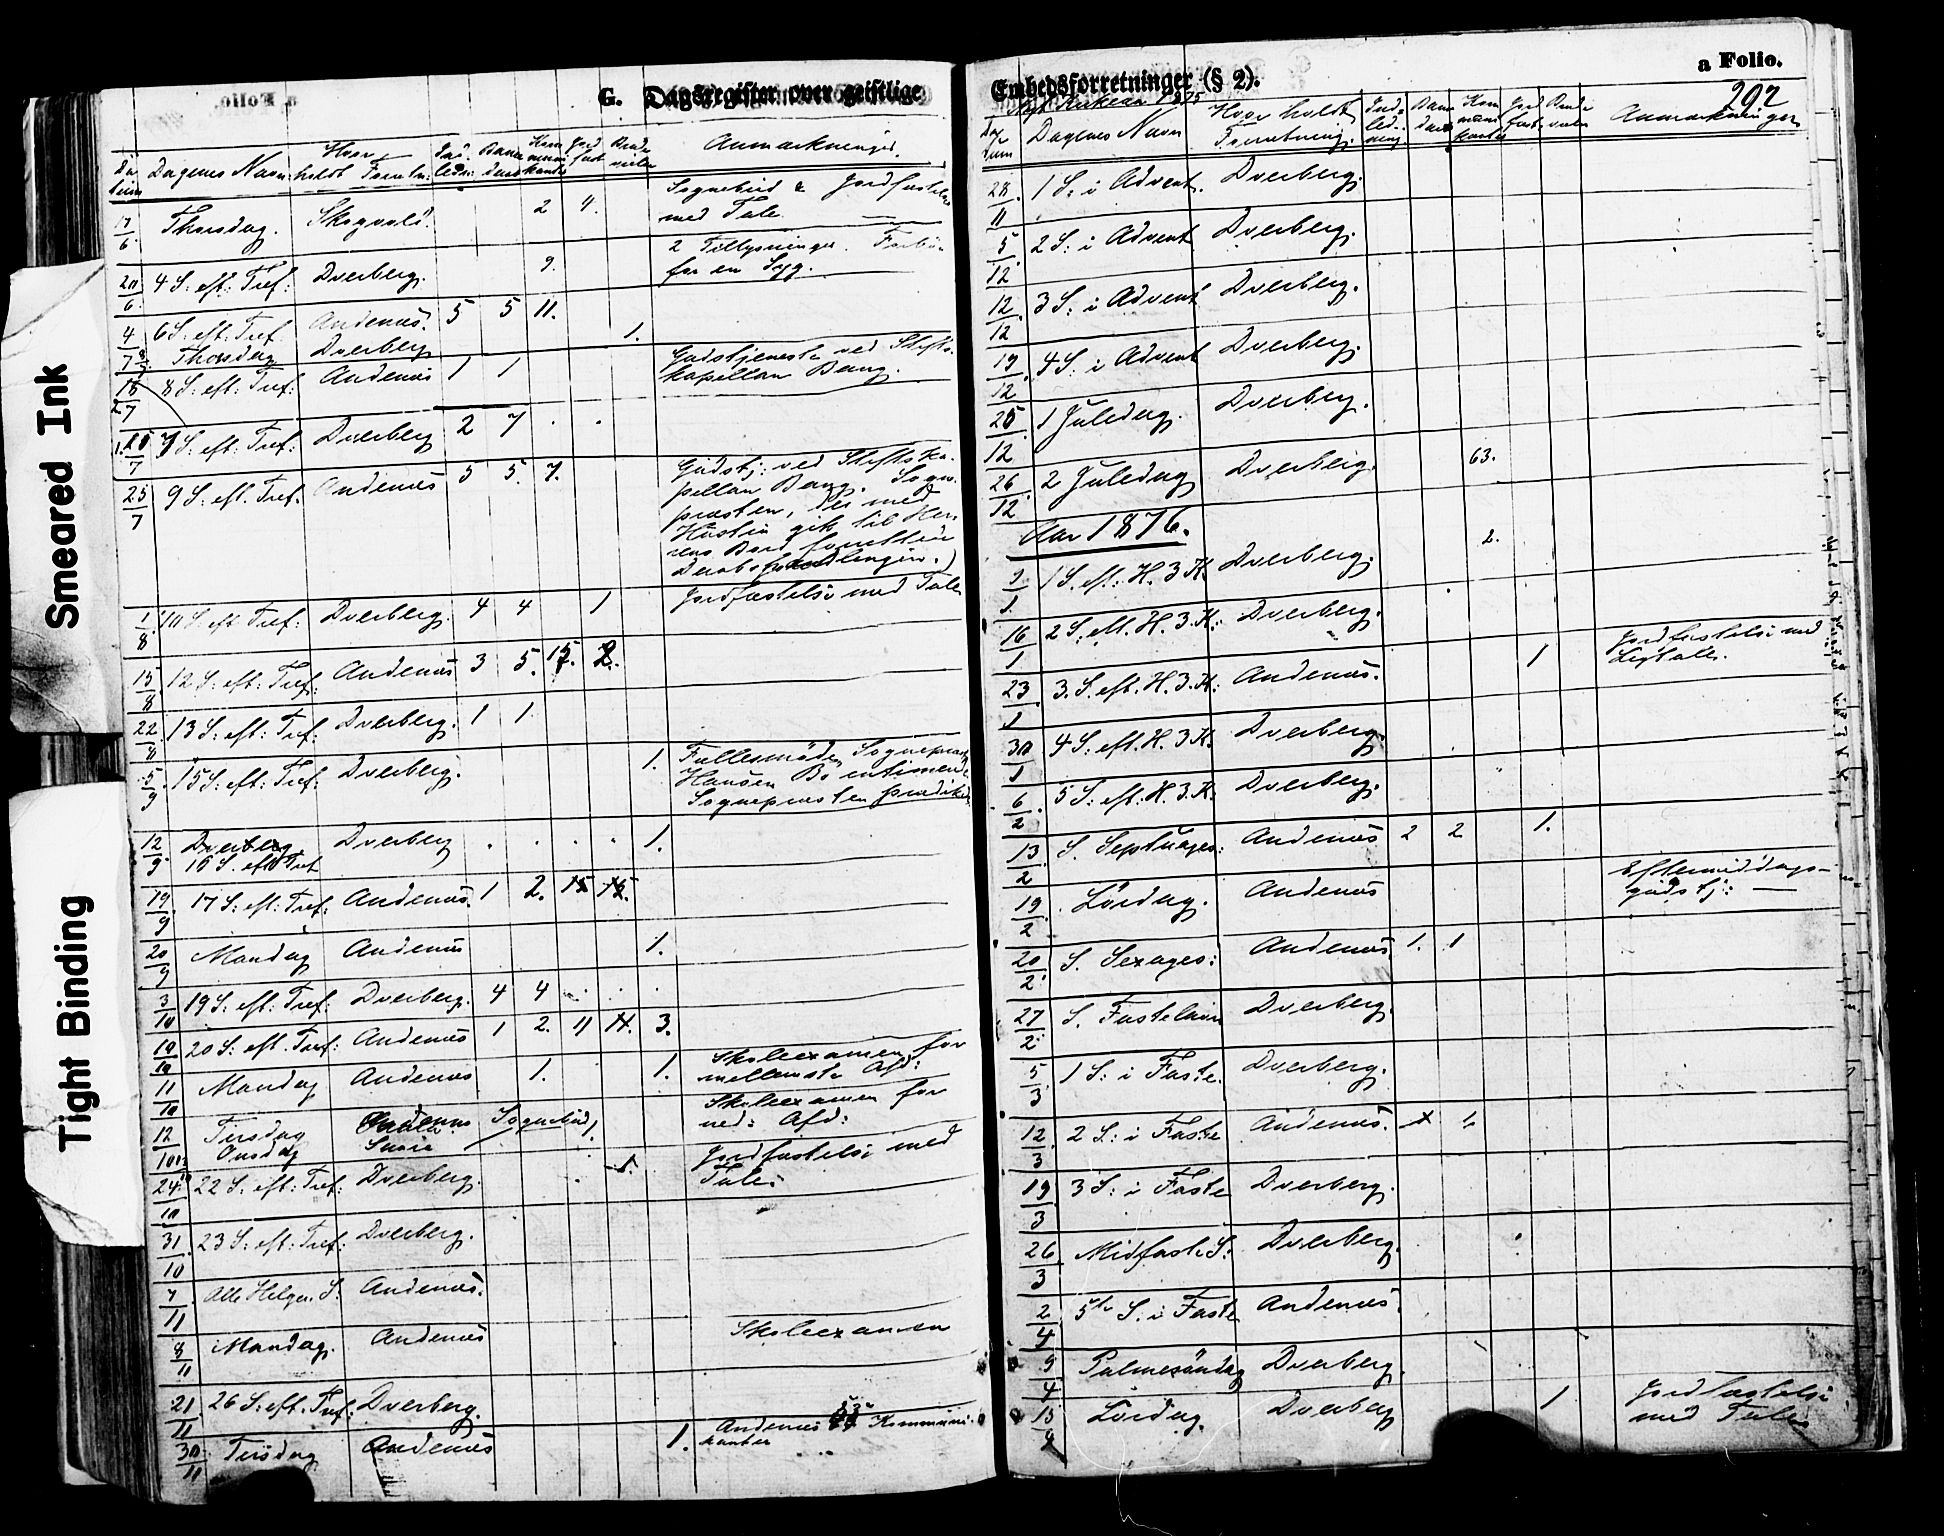 Smeared Ink
Tight Binding
G. Dagsregister over geistlige
Da-
tum Dagenes Navn Hvor holdt Forretn: Indledn: Daab Kommunikanter Jordfæst Brudevielser Anmærkninger.
17/6 Thorsdag. Skogvold. 2 4. Sognebud & Jordfæstelse
med Tale.
20/6 4 S: eft: Tref: Dverberg. 9. 2 Tillysninger. Forbøn
for en Syg.
4/7 6 S: eft: Tref. Andenæs. 5 5 11.
8/7 Thorsdag Dverberg 1.
18/7 8 S: eft: Tref: Andenæs 1 1 Gudstjeneste ved Stifts-
kapellan Bang.
7 S: eft: Tref: Dverberg 2 7
25/7 9 S: eft. Tref. Andenæs 5 5. 7. Gudstj: ved Stiftska-
pellan Bang. Sogne-
præsten, der med
Hustru gik til Her-
rens Bord
1/8 10 S: eft Tref: Dverberg. 4 4 1 Jordfæstelse med Tale
15/8 12 S: eft: Tref: Andenæs 3 5. 2.
22/8 13 S: eft: Tref: Dverberg. 1 1
5/9 15 S: eft: Tref: Dverberg. 1. Fællesmøde, Sognepræst
Hansen Bø
Sognepræsten
12/9 Dverberg Dverberg 1.
16 S. eft Tref
19/9 17 S: eft: Tref: Andenæs. 1 2. 15 15.
20/9 Mandag Andenæs 1.
3/10 19 S: eft: Tref: Dverberg. 4 4
10/10 20 S: eft. Tref: Andenæs 1 2. 11 11. 3.
11/10 Mandag Andenæs 1. 1. Skoleexamen for
mellemste Afd:
12/10 Tirsdag Andenæs Sognebud 1. Skoleexamen for
Onsdag ned: Afd:
24/10 22 S: eft: Tref: Dverberg. 1. Jordfæstelse med
Tale
31/10 23 S: eft: Tref: Dverberg.
7/11 Alle Helgen S: Andenæs.
8/11 Mandag. Andenæs Skoleexamen
21/11 26 S: eft. Tref: Dverberg.
30/11 Tirsdag Andenæs 1. Andenæs Kommuni-
kanter
Embedsforretninger (§ 2).
a Folio.
292
Kirkeaar 1875
Da-
tum Dagenes Navn Hvor holdt Forretning. Indledning. Daab Kommunikanter Jordfæst. Brudevielser Anmærkninger
28/11 1 S: i Advent. Dverberg.
5/12 2 S: i Advent Dverberg.
12/12 3 S: i Advent Dverberg.
19/12 4 S: i Advent Dverberg.
25/12 1 Juledag. Dverberg.
26/12 2 Juledag Dverberg. 63.
Aar 1876.
9/1 1 S. eft: H. 3 K. Dverberg. 2.
16/1 2 S. eft. H. 3. K: Dverberg.
23/1 3. S. eft. H. 3. K: Andenæs. 1 Jordfæstelse med
Ligtale.
30/1 4 S. eft. H. 3 K. Dverberg.
6/2 5 S: eft: H. 3. K: Dverberg.
13/2 S. Septuages: Andenæs 2 2 1.
19/2 Lördag. Andenæs Eftermiddags-
gudstj:
20/2 S. Sexages: Andenæs. 1. 1
27/2 S. Fastelavn Dverberg.
5/3 1 S: i Faste. Dverberg.
12/3 2 S: i Faste Andenæs.
19/3 3 S: i Faste Dverberg.
26/3 Midfaste S: Dverberg.
2/4 5te S. i Faste Andenæs.
9/4 Palmesöndag Dverberg.
15/4 Lördag. Dverberg 1 Jordfæstelse
med Tale